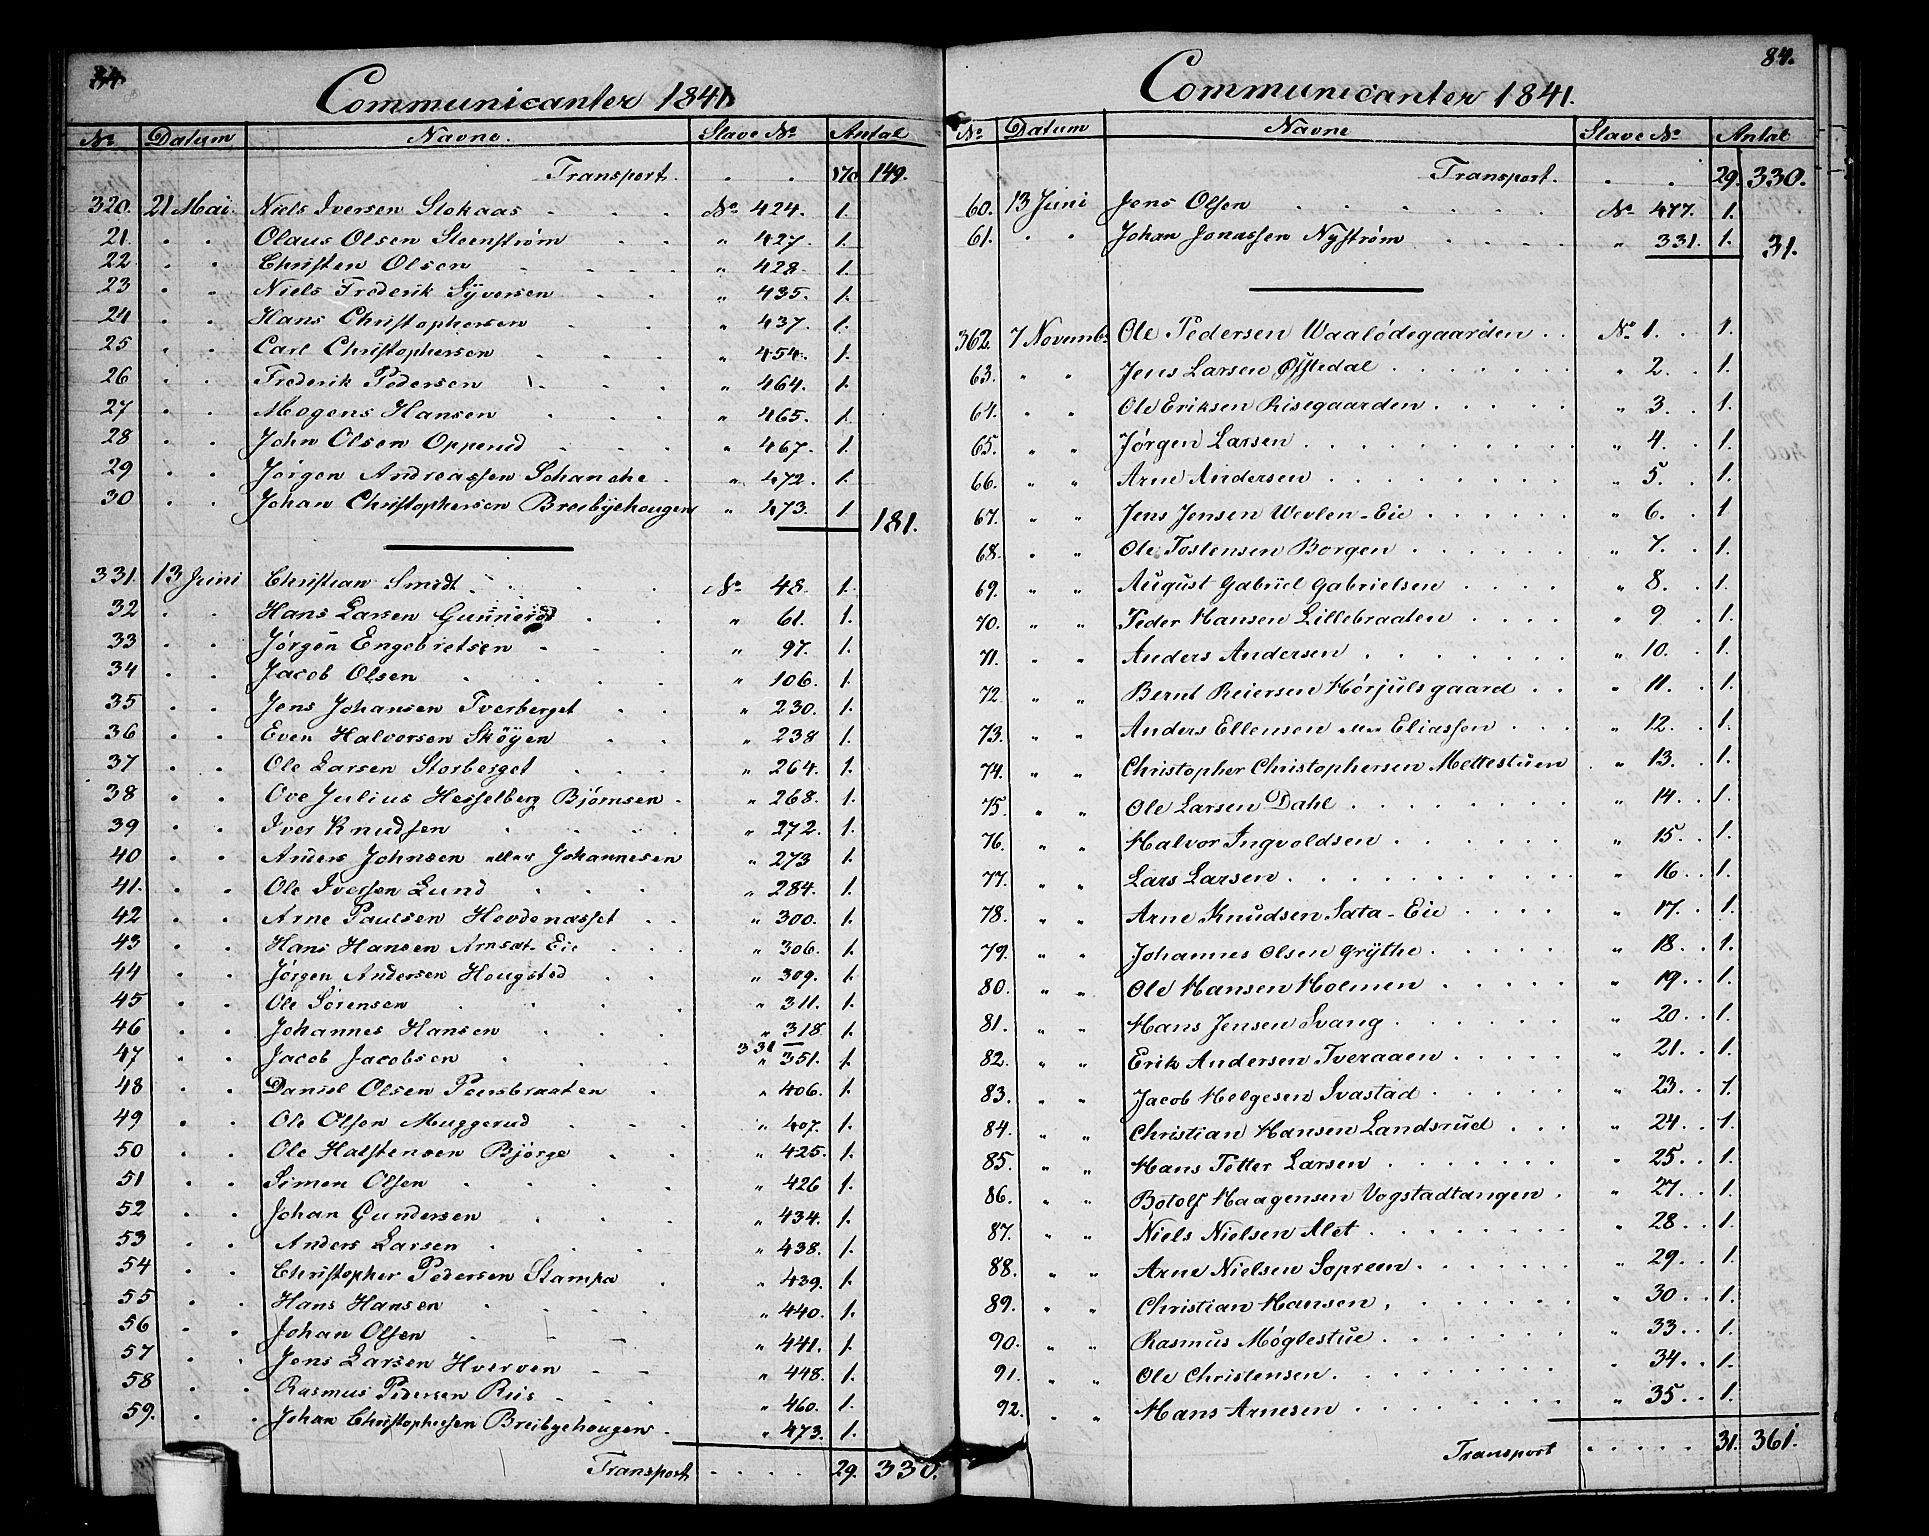 Communicanter 1841.
No Datum Navne. Slave No Antal
Transport . . 170 149.
320. 21 Mai. Niels Iversen Stokaas . . . No 424. 1.
21. " " Olaus Olsen Steenstrøm . . " 427. 1.
22 " " Christen Olsen . . . . " 428. 1.
23 " " Niels Frederik Syversen . . " 435. 1.
24 " " Hans Christophersen . . " 437. 1.
25 " " Carl Christophersen . . . " 454. 1.
26 " " Frederik Pedersen . . . " 464. 1.
27 " " Mogens Hansen . . . " 465. 1.
28 " " John Olsen Opperud . . . " 467. 1.
29 " " Jørgen Andreassen Schanche . " 472. 1.
30 " " Johan Christophersen Breibyehougen " 473. 1 181.
331. 13 Juni Christian Smidt . . . . No 48. 1.
32 " " Hans Larsen Gunnerød . . " 61. 1.
33 " " Jørgen Engebretsen . . . " 97. 1.
34 " " Jacob Olsen . . . . " 106. 1.
35 " " Jens Johansen Tverberget . . " 230. 1.
36 " " Even Halvorsen Skøyen . . " 238 1.
37 " " Ole Larsen Storberget . . . " 264. 1.
38 " " Ove Julius Hesselberg Bjørnsen . " 268. 1.
39 " " Iver Knudsen . . . . " 272. 1.
40 " " Anders Johnsen eller Johannesen " 273 1.
41. " " Ole Iversen Lund . . . . " 284. 1.
42 " " Arne Paulsen Hovdenasset . . " 300. 1.
43 " " Hans Hansen Arnsæt-Eie . . . " 306. 1.
44 " " Jørgen Andersen Hougsted . . " 309. 1.
45 " " Ole Sørensen . . . . " 311. 1.
46 " " Johannes Hansen . . . " 318 1.
331
47 " " Jacob Jacobsen . . . . " 351. 1.
48 " " Daniel Olsen Poersbraaten . " 406. 1.
49 " " Ole Olsen Muggerud . . . " 407. 1.
50 " " Ole Halstensen Bjørge . . " 425. 1.
51 " " Simen Olsen . . . . " 426 1.
52 " " Johan Gundersen . . . " 434. 1.
53 " " Anders Larsen . . . . " 438. 1.
54 " " Christopher Pedersen Stampa . " 439. 1.
55 " " Hans Hansen . . . . " 440. 1.
56 " " Johan Olsen . . . . " 441. 1.
57 " " Jens Larsen Hverven . . " 448. 1.
58 " " Rasmus Pedersen Riis . . . " 460. 1.
59. " " Johan Christophersen Breibyehougen . " 473. 1.
Transport . . . . 29. 330.
84.
Communicanter 1841.
No Datum Navne Slave No Antal
Transport. . . 29. 330.
60. 13 Juni Jens Olsen . . . . . . No 477. 1.
61. " " Johan Jonassen Nystrøm . . . . " 331. 1. 31.
362. 7 Novemb. Ole Pedersen Waalødegaarden . . No 1. . 1.
63. " " Jens Larsen Østedal . . . . . . " 2. . 1.
64. " " Ole Eriksen Risegaarden . . . . . " 3. . 1.
65. " " Jørgen Larsen . . . . . . . . " 4. . 1.
66. " " Arne Andersen . . . . . . . " 5. . 1.
67. " " Jens Jensen Wevlen-Eie . . . . . " 6. . 1
68. " " Ole Tostensen Borgen . . . . . . " 7. . 1.
69. " " August Gabriel Gabrielsen . . . . " 8. . 1.
70. " " Peder Hansen Lillebraaten . . . . " 9 . 1.
71. " " Anders Andersen . . . . . . . " 10. . 1.
72 " " Bernt Reiersen Hørjulsgaard . . " 11. . 1.
73. " " Anders Ellensen eller Eliassen . . . " 12. . 1.
74. " " Christopher Christophersen Mettestuen . " 13. . 1.
75 " " Ole Larsen Dahl . . . . . . . " 14. . 1.
76. " " Halvor Ingvoldsen . . . . . . " 15. . 1.
77. " " Lars Larsen . . . . . . . . . " 16. . 1.
78. " " Arne Knudsen Sata-Eie . . . . " 17. . 1.
79. " " Johannes Olsen Grythe . . . . . " 18. . 1.
80. " " Ole Hansen Holmen . . . . . " 19. . 1.
81. " " Hans Jensen Svang . . . . . . " 20. . 1.
82. " " Erik Andersen Tveraaen . . . . . " 21. . 1.
83. " " Jacob Helgesen Svastad . . . . . " 23. . 1.
84. " " Christian Hansen Landsrud . . . " 24. . 1.
85. " " Hans Petter Larsen . . . . . . " 25. . 1.
86. " " Botolf Haagensen Vogstadtangen . " 27. . 1.
87. " " Niels Nielsen Alet . . . . . . " 28. . 1.
88. " " Arne Nielsen Sopreen . . . . . " 29. . 1.
89. " " Christian Hansen . . . . . . " 30. . 1.
90. " " Rasmus Møglestue . . . . . . " 33. . 1.
91. " " Ole Christensen . . . . . . . " 34. . 1.
92. " " Hans Arnesen . . . . . . . " 35. . 1.
Transport . . . . . 31. 361.